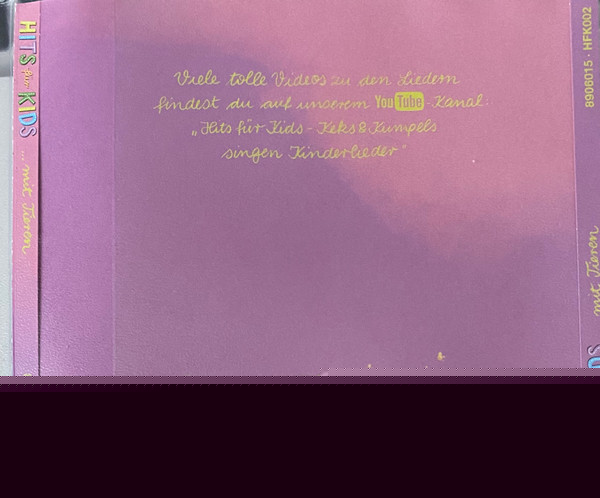 HITS für KIDS ... mit Tieren
Viele tolle Videos zu den Liedern
findest du auf unserem YouTube-Kanal:
„Hits für Kids - Keks & Kumpels
singen Kinderlieder"
8906015 · HFK002
mit Tieren